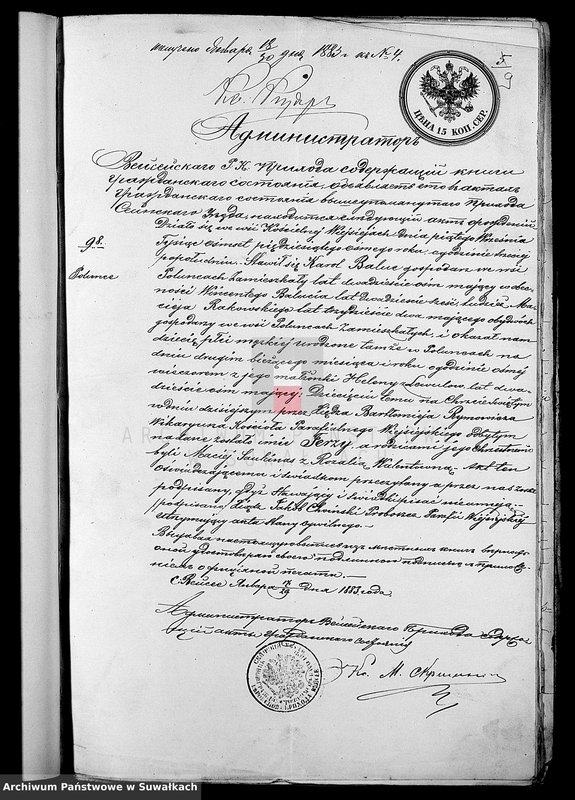 получено Января 18/30 дня 1883 г за № 4.
5
9
Кс.
ЦѢНА 15 КОП. СЕР.
Администраторъ
Вейсейскаго Р. К. Прихода содержащий книги
Гражданскаго состоянія объявляетъ что въ актахъ
Гражданскаго состоянія вышеупомянутаго Прихода
Сейнскаго Уѣзда находится слѣдующій актъ о рожденіи
98.
Działo się we wsi Kościelnej Wejsiejach dnia piątego Września
Tysiąc ośmset pięćdziesiątego ósmego roku, o godzinie trzeciej
popołudniu. Stawił się Karol Baluc gospodarz we wsi
Poluncach zamieszkały lat dwadzieścia ośm mający w obec-
ności Wincentego Balucia lat dwadzieścia sześć, tudzież Ma-
cieja Rakowskiego lat trzydzieście dwa mającego obydwóch
gospodarzy we wsi Poluncach zamieszkałych i okazał nam
dziecię płci męzkiej urodzone tamże w Poluncach na
dniu drugim bieżącego miesiąca i roku o godzinie ósmej
wieczorem z jego małżonki Heleny z lat dwa-
dzieście ośm mającej. Dziecięciu temu na Chrzcie Świętym
w dniu dzisiejszym przez Księdza Bartłomieja
Wikaryusza Kościoła Parafialnego Wejsiejskiego odbytym
nadane zostało imie Jerzy, a rodzicami jego Chrzestnemi
byli Maciej Saukinas z Rozalią Akt ten
oświadczającemu i świadkom przeczytany a przez nas został
podpisany, gdyż Stawający i świadki pisać nieumieją.
podpisano Xiądz Proboszcz Parafii Wejsiejskiej
utrzymujący akta stanu cywilnego.—
официальной печати.—
С. Вейсее Января 17/29 дня 1883 года
Администраторъ Вейсейскаго Прихода
акты гражданскаго состоянія
Кс. М.
Archiwum Państwowe w Suwałkach